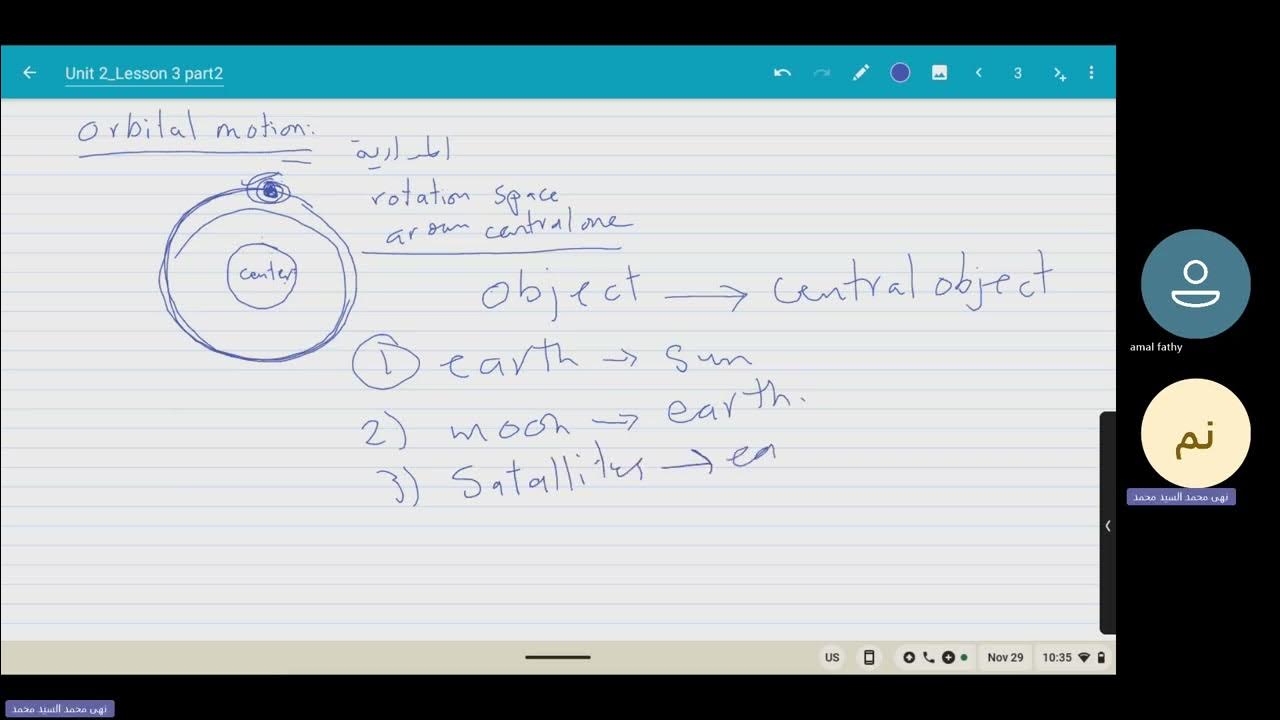 Unit 2_Lesson 3 part2
3
Orbital motion:
المدارية
rotation space
aroun central one
center
object → central object
1 earth → sun
2) moon → earth.
3) Satallites → ea
amal fathy
نم
نهى محمد السيد محمد
US
Nov 29
10:35
نهى محمد السيد محمد